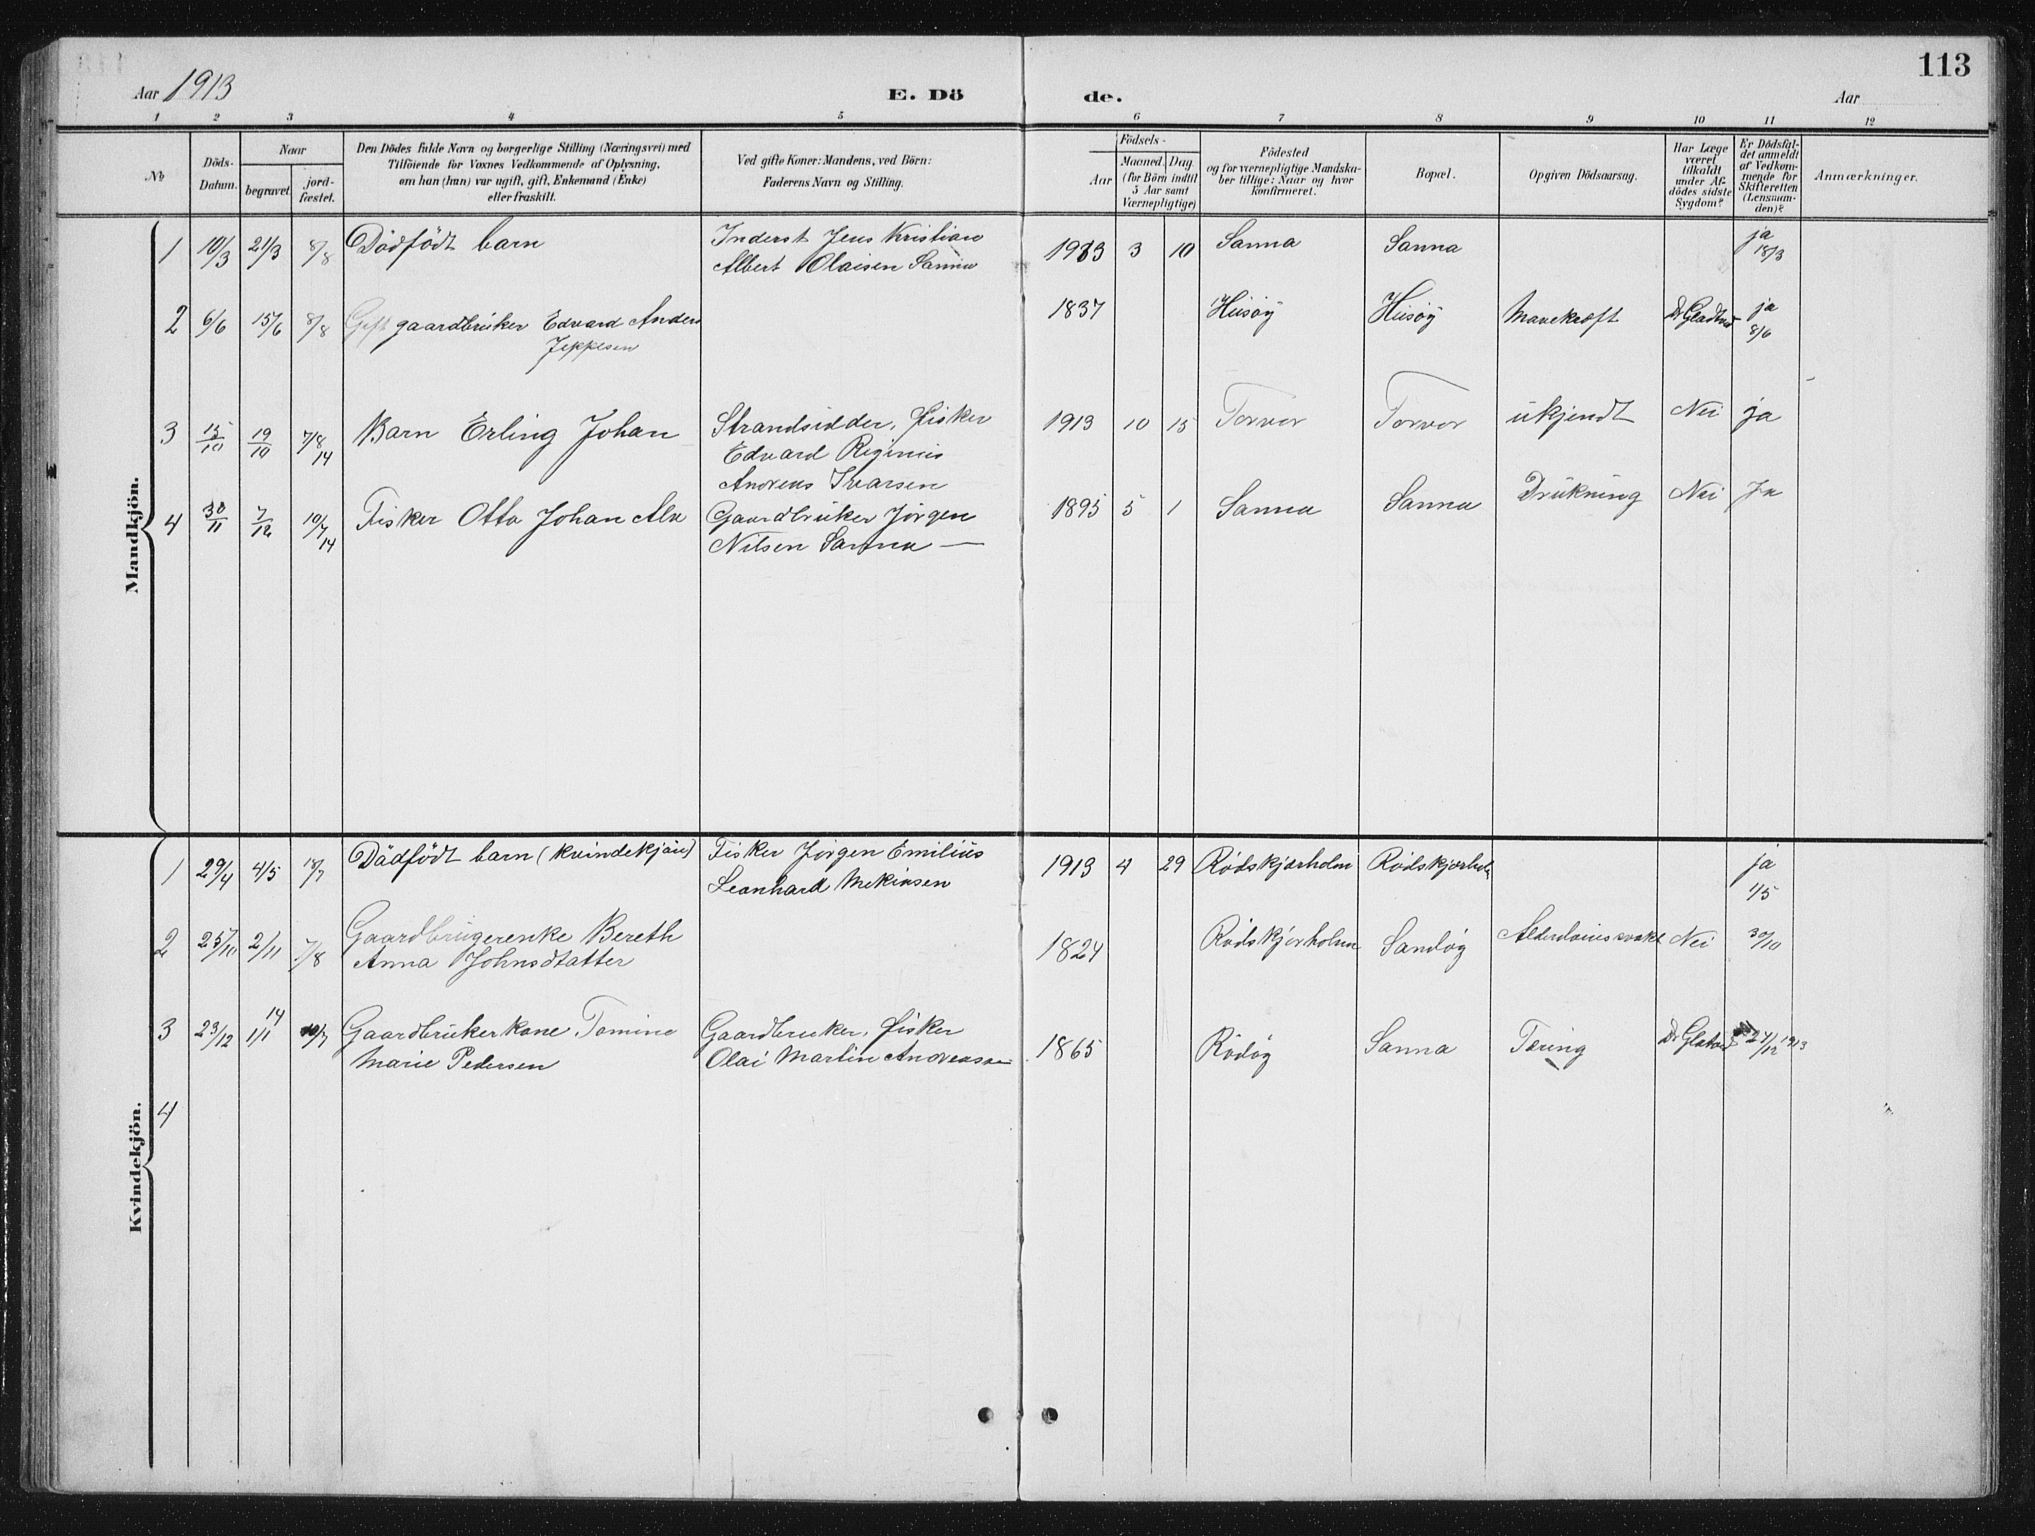 Aar 1913
E. Dö
de.
Aar
113
1 2 3 4 5 6 7 8 9 10 11 12
No
Döds-
Datum.
Naar
begravet.
jord-
fæstet.
Den Dödes fulde Navn og borgerlige Stilling (Næringsvei) med
Tilföiende for Voxnes Vedkommende af Oplysning,
om han (hun) var ugift, gift, Enkemand (Enke)
eller fraskilt.
Ved gifte Koner: Mandens, ved Börn:
Faderens Navn og Stilling.
Födsels-
Aar
Maaned. Dag.
(for Börn indtil
5 Aar samt
Værnepligtige)
Födested
og for værnepligtige Mandska-
ber tillige: Naar og hvor
konfirmeret.
Bopæl.
Opgiven Dödsaarsag.
Har Læge
været
tilkaldt
under Af-
dödes sidste
Sygdom?
Er Dödsfal-
det anmeldt
af Vedkom-
mende for
Skifteretten
(Lensman-
den)?
Anmærkninger.
Mandkjön.
1 10/3 21/3 8/8 Dödfödt barn Inderst Jens Kristian 1913 3 10 Sanna Sanna ja
Albert Olaisen Sanna 18/3
2 6/6 15/6 8/8 Gift gaardbruker Edvard Anders 1837 Husöy Husöy Mavekræft ja
Jeppesen 8/6
3 15/10 19/10 7/8 14 Barn Erling Johan Strandsidder, fisker 1913 10 15 Torvær Torvær ukjendt Nei ja
Edvard Reginius
Andreas Ivarsen
4 30/11 7/12 10/7 14 Fisker Otto Johan Alu Gaardbruker Jørgen 1895 5 1 Sanna Sanna Drukning Nei Ja
Nilsen Sanna —
Kvindekjön.
1 29/4 4/5 18/7 Dödfödt barn (kvindekjön) Fisker Jørgen Emilius 1913 4 29 Rødskjærholm Rødskjærholm ja
Leonhard Mekinsen 4/5
2 25/10 2/11 7/8 Gaardbrugerenke Bereth 1824 Rødskjærholm Sandøy Nei 30/10
Anna Johnsdtatter
3 23/12 1/1 14 10/7 Gaardbrukerkone Tomine Gaardbruker, fisker 1865 Rødøy Sanna Tæring 27/12 1913
Marie Pedersen Olai Martin Andreassen
4